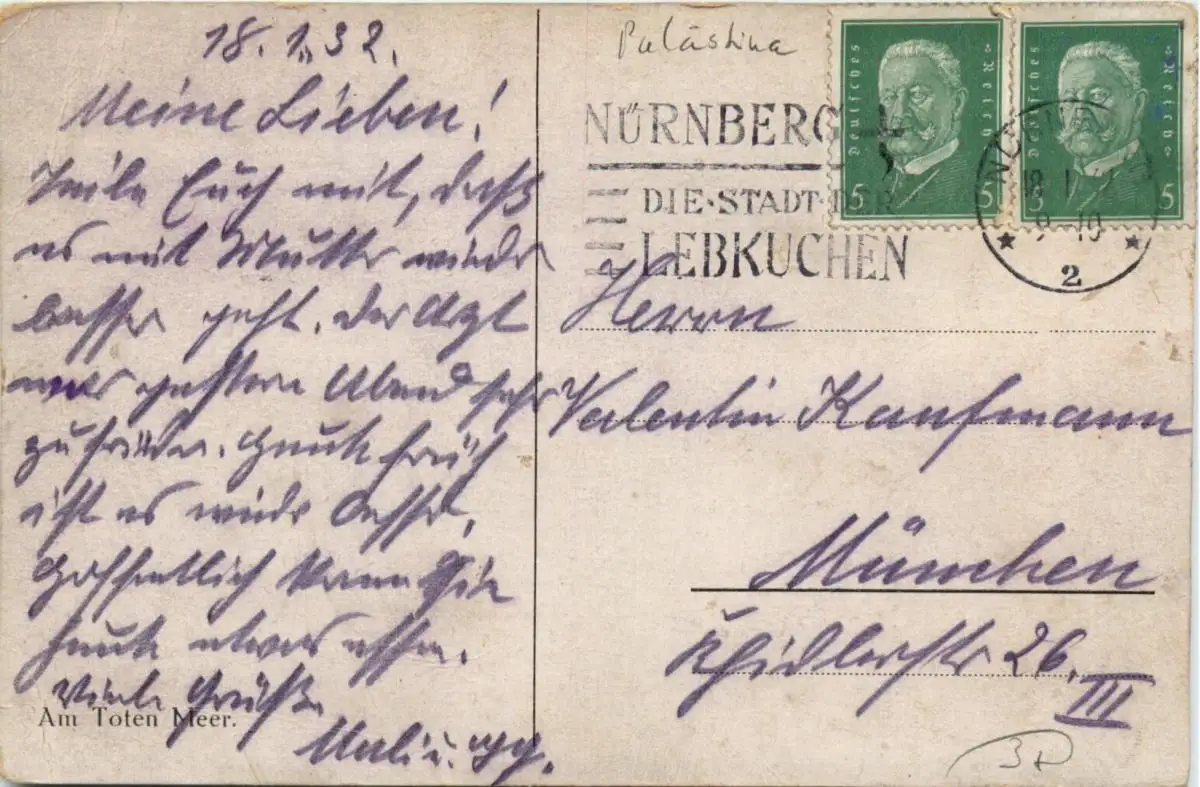 18.1.32.
Meine Lieben!
Teile Euch mit, daß
es mit Mutter wieder
besser geht. Der Arzt
war gestern Abend sehr
zufrieden. Heute früh
ist es wieder besser.
Hoffentlich kann Sie
heute etwas essen.
Viele Grüße
Am Toten Meer.
Palästina
NÜRNBERG
DIE·STADT·DER
LEBKUCHEN
Deutsches Reich
5 5
Deutsches Reich
5 5
18 1
9-10
2
Herrn
Valentin Kaufmann
München
26.
III